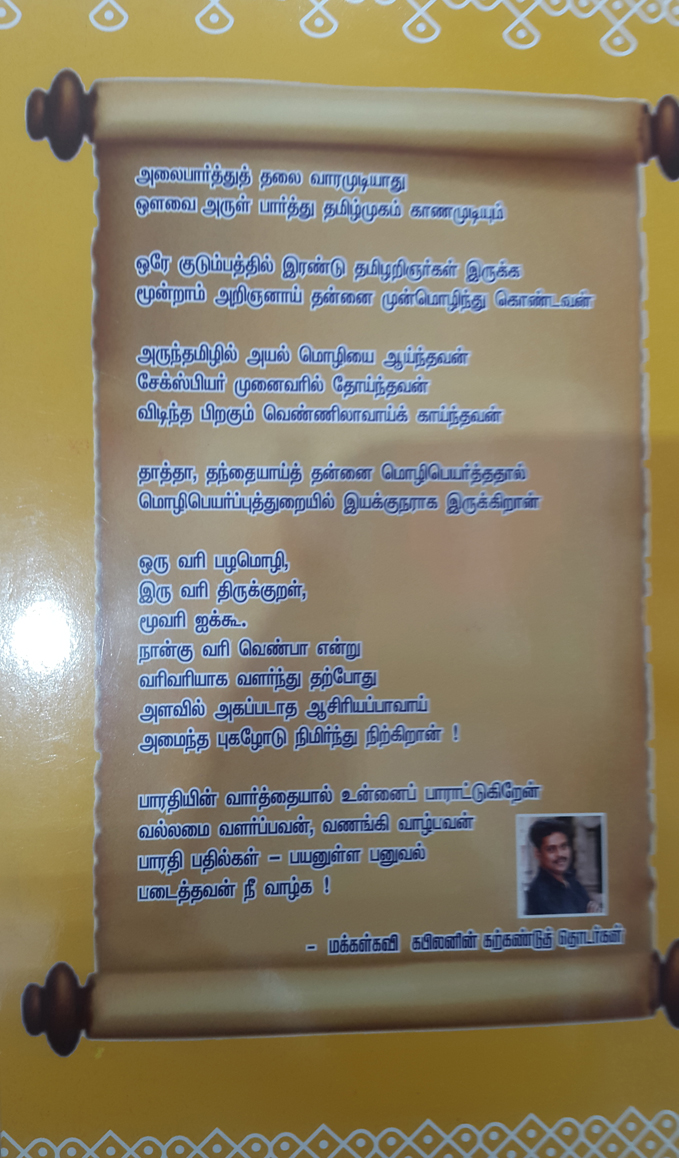 அலைபார்த்துத் தலை வாரமுடியாது
ஔவை அருள் பார்த்து தமிழ்முகம் காணமுடியும்
ஒரே குடும்பத்தில் இரண்டு தமிழறிஞர்கள் இருக்க
மூன்றாம் அறிஞனாய் தன்னை முன்மொழிந்து கொண்டவன்
அருந்தமிழில் அயல் மொழியை ஆய்ந்தவன்
சேக்ஸ்பியர் முனைவரில் தோய்ந்தவன்
விடிந்த பிறகும் வெண்ணிலாவாய்க் காய்ந்தவன்
தாத்தா, தந்தையாய்த் தன்னை மொழிபெயர்த்ததால்
மொழிபெயர்ப்புத்துறையில் இயக்குநராக இருக்கிறான்
ஒரு வரி பழமொழி,
இரு வரி திருக்குறள்,
மூவரி ஐக்கூ.
நான்கு வரி வெண்பா என்று
வரிவரியாக வளர்ந்து தற்போது
அளவில் அகப்படாத ஆசிரியப்பாவாய்
அமைந்த புகழோடு நிமிர்ந்து நிற்கிறான் !
பாரதியின் வார்த்தையால் உன்னைப் பாராட்டுகிறேன்
வல்லமை வளர்ப்பவன், வணங்கி வாழ்பவன்
பாரதி பதில்கள் – பயனுள்ள பனுவல்
படைத்தவன் நீ வாழ்க !
- மக்கள்கவி கபிலனின் கற்கண்டுத் தொடர்கள்